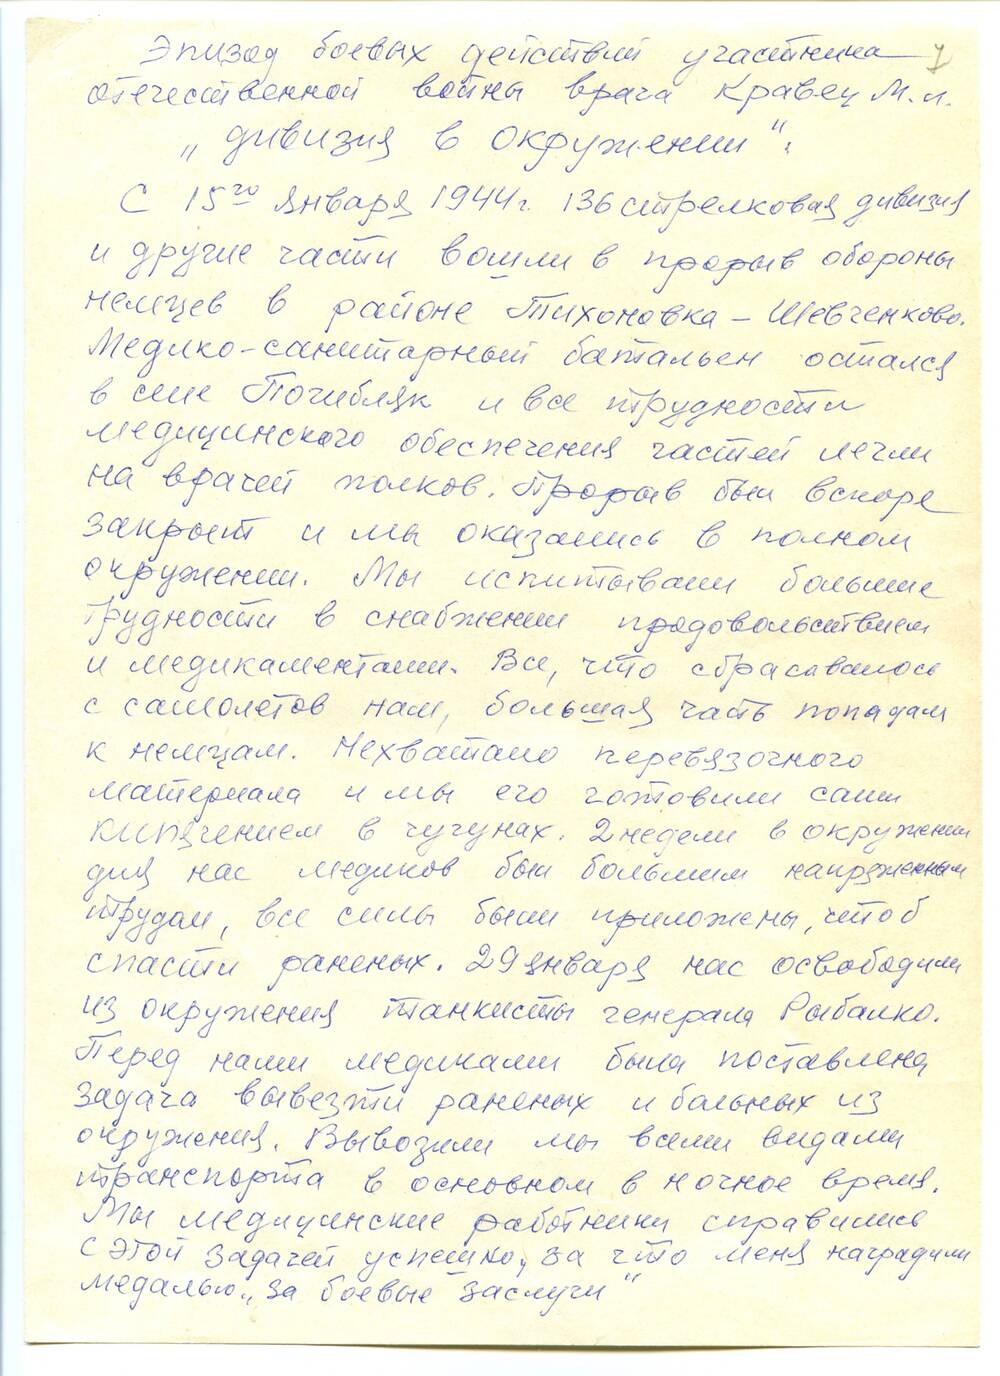 Эпизод боевых действий участника 7
отечественной войны врача Кравец М.Л.
„дивизия в окружении".
С 15го января 1944г. 136 стрелковая дивизия
и другие части вошли в прорыв обороны
немцев в районе Тихоновка – Шевченково.
Медико-санитарный батальен остался
в селе Погибляк и все трудности
медицинского обеспечения частей легли
на врачей полков. Прорыв был вскоре
закрыт и мы оказались в полном
окружении. Мы испитывали большие
трудности в снабжении продовольствием
и медикаментами. Все, что сбрасавалось
с самолетов нам, большая часть попадали
к немцам. Нехватало перевязочного
материала и мы его готовили сами
кипячением в чугунах. 2 недели в окружении
для нас медиков был большим напряженным
трудом, все силы были приложены, чтоб
спасти раненых. 29 января нас освободили
из окружения танкисты генерала Рыбалко.
Перед нами медиками была поставлена
задача вывезти раненых и больных из
окружения. Вывозили мы всеми видами
транспорта в основном в ночное время.
Мы медицинские работники справились
с этой задачей успешно, за что меня наградили
медалью „за боевые заслуги"